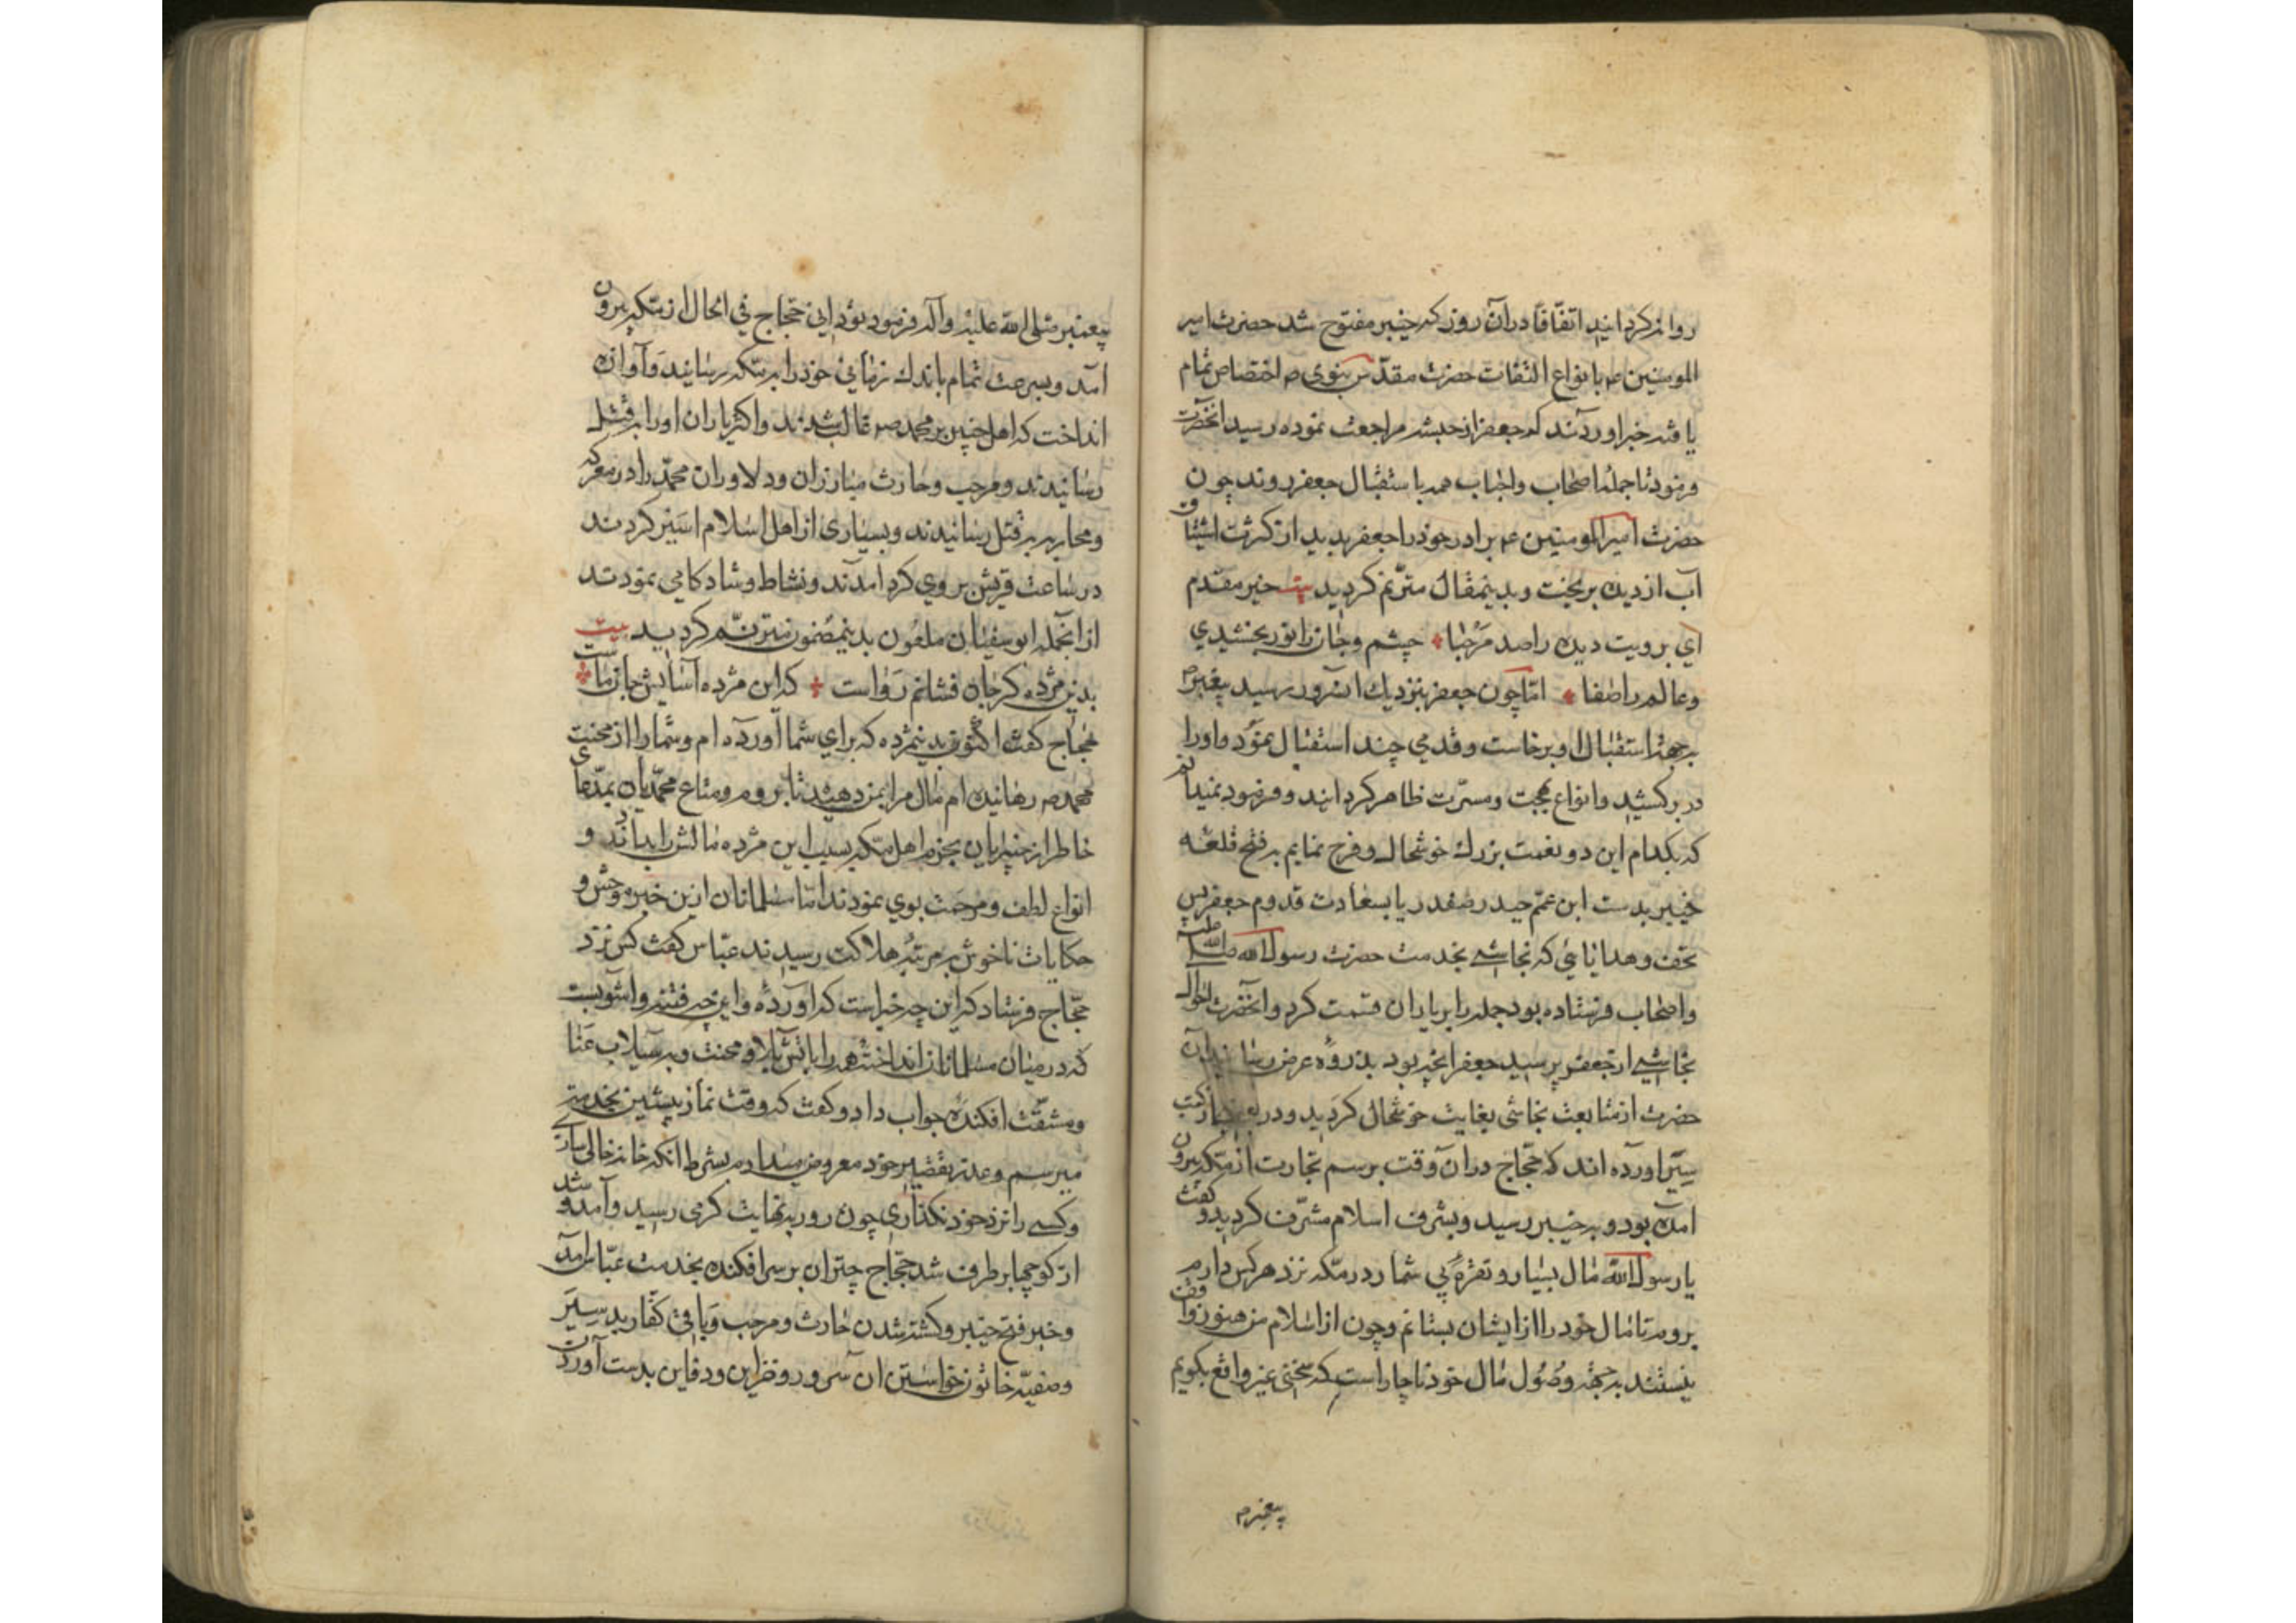 روانه کردانید اتفاقا در آن روز که خیبر مفتوح شد حضرت امیر
المومنین ع بانواع التفات حضرت مقدس نبوی ص اختصاص تمام
یافته خبر اوردند که جعفر از حبشه مراجعت نموده رسید انحضرت
فرمود تا جمله اصحاب واحباب همه باستقبال جعفر روند چون
حضرت امیرالمومنین ع برادر خود را جعفر بدید از کثرت اشتیاق
آب از دیده بریخت و بدینمقال مترنم کردید بیت خیر مقدم
ای برویت دیده را صد مرحبا چشم وجان را نور بخشیدی
وعالم را صفا اما چون جعفر بنزدیك ان سرور رسید پیغمبر ص
بجهة استقبال او برخاست وقدمی چند استقبال نمود واورا
در برکشید وانواع بهجت ومسرت ظاهر کردانید وفرمود نمیدانم
که بکدام این دو نعمت بزرك خوشحال وفرح نمایم بفتح قلعه
خیبر بدست ابن عمم حیدر صفدر یا بسعادت قدوم جعفر پس
تحف وهدایائی که نجاشی بخدمت حضرت رسول الله صلی الله علیه
واصحاب فرستاده بود جمله را بر یاران قسمت کرد وانحضرت احوال
نجاشی از جعفر پرسید جعفر انچه بود بذروه عرض رسانید آن
حضرت از متابعت نجاشی بغایت خوشحال کردید ودر بعضی از کتب
سیر اورده اند که حجاج در ان وقت برسم تجارت از مکه بیرون
امده بود وبه خیبر رسید وبشرف اسلام مشرف کردید وکفت
یا رسول الله مال بسیار ونقره بی شمار در مکه نزد هر کس دارم
بروم تا مال خود را از ایشان بستانم وچون از اسلام من هنوز واقف
نیستند بجهة وصول مال خود ناچار است که سخنی غیر واقع بکویم
پیغمبرم
پیغمبر صلی الله علیه وآله فرمود بود این حجاج فی الحال از مکه بیرون
امد وبسرعت تمام باندك زمانی خود را به مکه رسانید وآوازه
انداخت که اهل خیبر بر محمد ص غالب شدند واکثر یاران اورا بقتل
رسانیدند ومرحب وحارث مبارزان ودلاوران محمد را در معرکه
ومحاربه بقتل رسانیدند وبسیاری از اهل اسلام اسیر کردند
در ساعت قریش بروی کرد امدند ونشاط وشادکامی نمودند
از انجمله ابوسفیان ملعون بدینمضمون مترنم کردید بیت
بدین مژده کر جان فشانم رواست که این مژده آسایش جان ماست
حجاج کفت اکنون بدینمژده که برای شما آورده ام وشما را از محنت
محمد ص رهانیده ام مال مرا بمن دهید تا بروم ومتاع محمدیان بمدعای
خاطر از خیبریان بخرم اهل مکه بسبب این مژده مالش را بدادند و
انواع لطف ومرحمت بوی نمودند اما مسلمانان ازین خبر موحش و
حکایات ناخوش بمرتبه هلاکت رسیدند عباس کفت کس نزد
حجاج فرستاد که این چه خبر است که اورده واین چه فتنه واشوبست
که در میان مسلمانان انداخته همه را باتش بلا ومحنت وبسیلاب عنا
ومشقت افکنده جواب داد وکفت که وقت نماز پیشین بخدمت
میرسم وعذر تقصیر خود معروض میدارم بشرط انکه خانه خالی سازی
وکسی را نزد خود نکذاری چون روز بنهایت کرمی رسید وآمد وشد
از کوچها برطرف شد حجاج چتران بر سر افکنده بخدمت عباس امد
وخبر فتح خیبر وکشته شدن حارث ومرحب وباقی کفار بد سیر
وصفیه خاتون خواستن ان سرور وخزاین ودفاین بدست آوردن